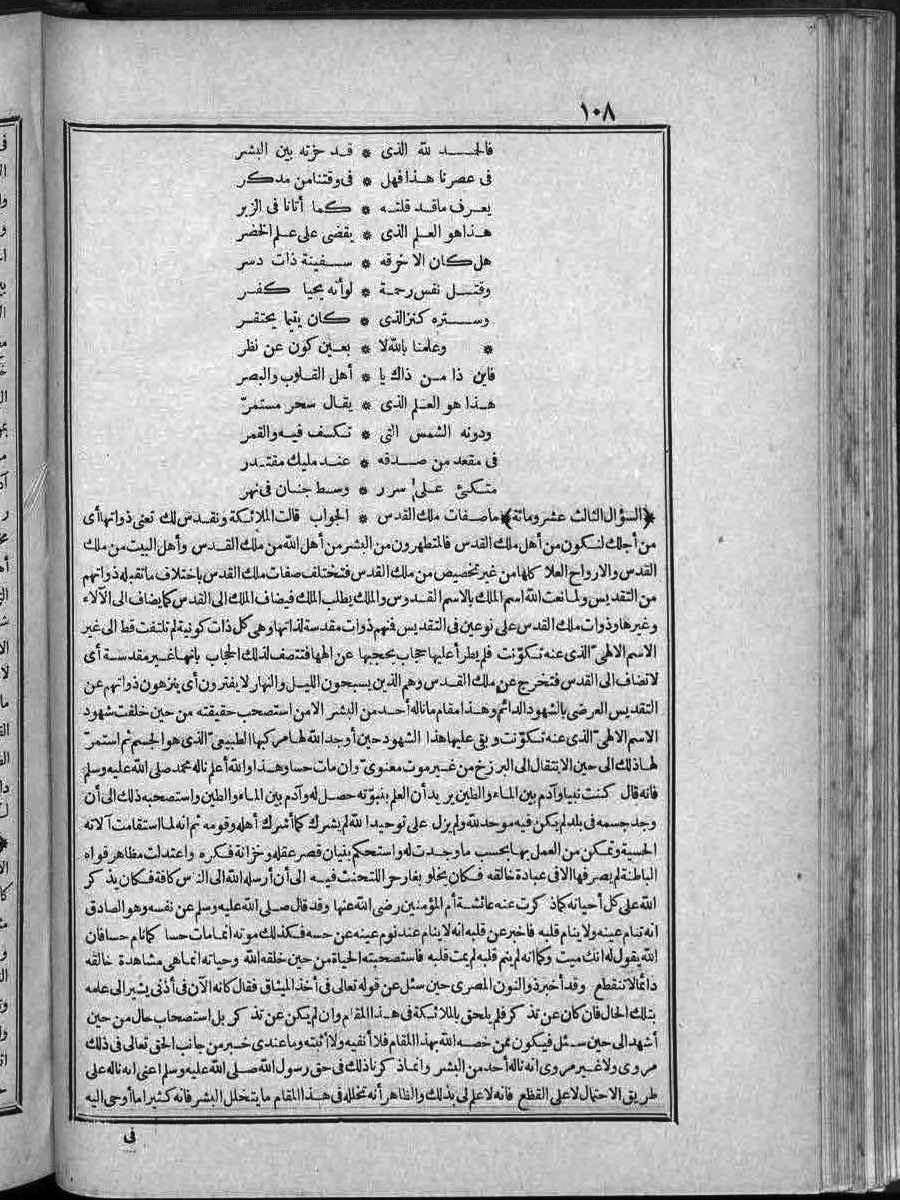 ١٠٨
فالحمد لله الذى * قد حزته بين البشر
فى عصرنا هذا فهل * فى وقتنا من مدكر
يعرف ماقد قلته * كما أتانا فى الزبر
هذا هو العلم الذى * يقضى على علم الخضر
هل كان الا خرقه * سفينة ذات دسر
وقتل نفس رحمة * لو أنه يحيا كفر
وستره كنز الذى * كان يقيما يحتقر
* وعلمنا بالله لا * بعين كون عن نظر
فاين ذا من ذاك يا * أهل القلوب والبصر
هذا هو العلم الذى * يقال سحر مستمرّ
ودونه الشمس التى * تكسف فيه والقمر
فى مقعد من صدقه * عند مليك مقتدر
متكئ على سرر * وسط جنان فى نهر
﴿السؤال الثالث عشر ومائة﴾ ما صفات ملك القدس * الجواب قالت الملائكة ونقدس لك تعنى ذواتها أى
من أجلك لنكون من أهل ملك القدس فالمتطهرون من البشر من أهل الله من ملك القدس وأهل البيت من ملك
القدس والارواح العلا كلها من غير تخصيص من ملك القدس فتختلف صفات ملك القدس باختلاف ماتقبله ذواتهم
من التقديس ولما نعت الله اسم الملك بالاسم القدوس والملك يطلب الملك فيضاف الملك الى القدس كما يضاف الى الآلاء
وغيرها وذوات ملك القدس على نوعين فى التقديس فنهم ذوات مقدسة لذاتها وهى كل ذات كونية لم تلتفت قط الى غير
الاسم الالهىّ الذى عنه تكوّنت فلم يطرأ عليها حجاب يحجبها عن الهها فتتصف لذلك الحجاب بانها غير مقدسة أى
لا تضاف الى القدس فتخرج عن ملك القدس وهم الذين يسبحون الليل والنهار لا يفترون أى ينزهون ذواتهم عن
التقديس العرضى بالشهود الدائم وهذا مقام ماناله أحد من البشر الا من استصحب حقيقته من حين خلقت شهود
الاسم الالهىّ الذى عنه تكوّنت وبقى عليها هذا الشهود حين أوجد الله لها مركبها الطبيعىّ الذى هو الجسم ثم استمرّ
لها ذلك الى حين الانتقال الى البرزخ من غير موت معنوىّ وان مات حسا وهذا والله أعلم ناله محمد صلى الله عليه وسلم
فانه قال كنت نبيا وآدم بين الماء والطين يريد أن العلم بنبوّته حصل له وآدم بين الماء والطين واستصحبه ذلك الى أن
وجد جسمه فى بلد لم يكن فيه موحد لله ولم يزل على توحيد الله لم يشرك كما أشرك أهله وقومه ثم انه لما استقامت آلاته
الحسية وتمكن من العمل بها بحسب ما وجدت له واستحكم بنيان قصر عقله وخزانة فكره واعتدلت مظاهر قواه
الباطنة لم يصرفها الا فى عبادة خالقه فكان يخلو بغار حرا للتحنث فيه الى أن أرسله الله الى الناس كافة فكان يذكر
الله على كل أحيانه كما ذكرت عنه عائشة أم المؤمنين رضى الله عنها وقد قال صلى الله عليه وسلم عن نفسه وهو الصادق
انه تنام عينه ولا ينام قلبه فاخبر عن قلبه انه لا ينام عند نوم عينه عن حسه فكذلك موته انما مات حسا كما نام حسا فان
الله يقول له انك ميت وكما انه لم ينم قلبه لم يمت قلبه فاستصحبته الحياة من حين خلقه الله وحياته انما هى مشاهدة خالقه
دائما لا تنقطع وقد أخبر ذو النون المصرى حين سئل عن قوله تعالى فى أخذ الميثاق فقال كانه الآن فى أذنى يشير الى علمه
بتلك الحال فان كان عن تذكر فلم يلحق بالملائكة فى هذا المقام وان لم يكن عن تذكر بل استصحاب حال من حين
أشهد الى حين سئل فيكون ممن خصه الله بهذا المقام فلا أنفيه ولا أثبته وما عندى خبر من جانب الحق تعالى فى ذلك
مروى ولا غير مروى انه ناله أحد من البشر وانما ذكرنا ذلك فى حق رسول الله صلى الله عليه وسلم أعنى انه ناله على
طريق الاحتمال لا على القطع فانه لا علم لى بذلك والظاهر أنه تخلله فى هذا المقام ما يتخلل البشر فانه كثيرا ما أوحى اليه
فى